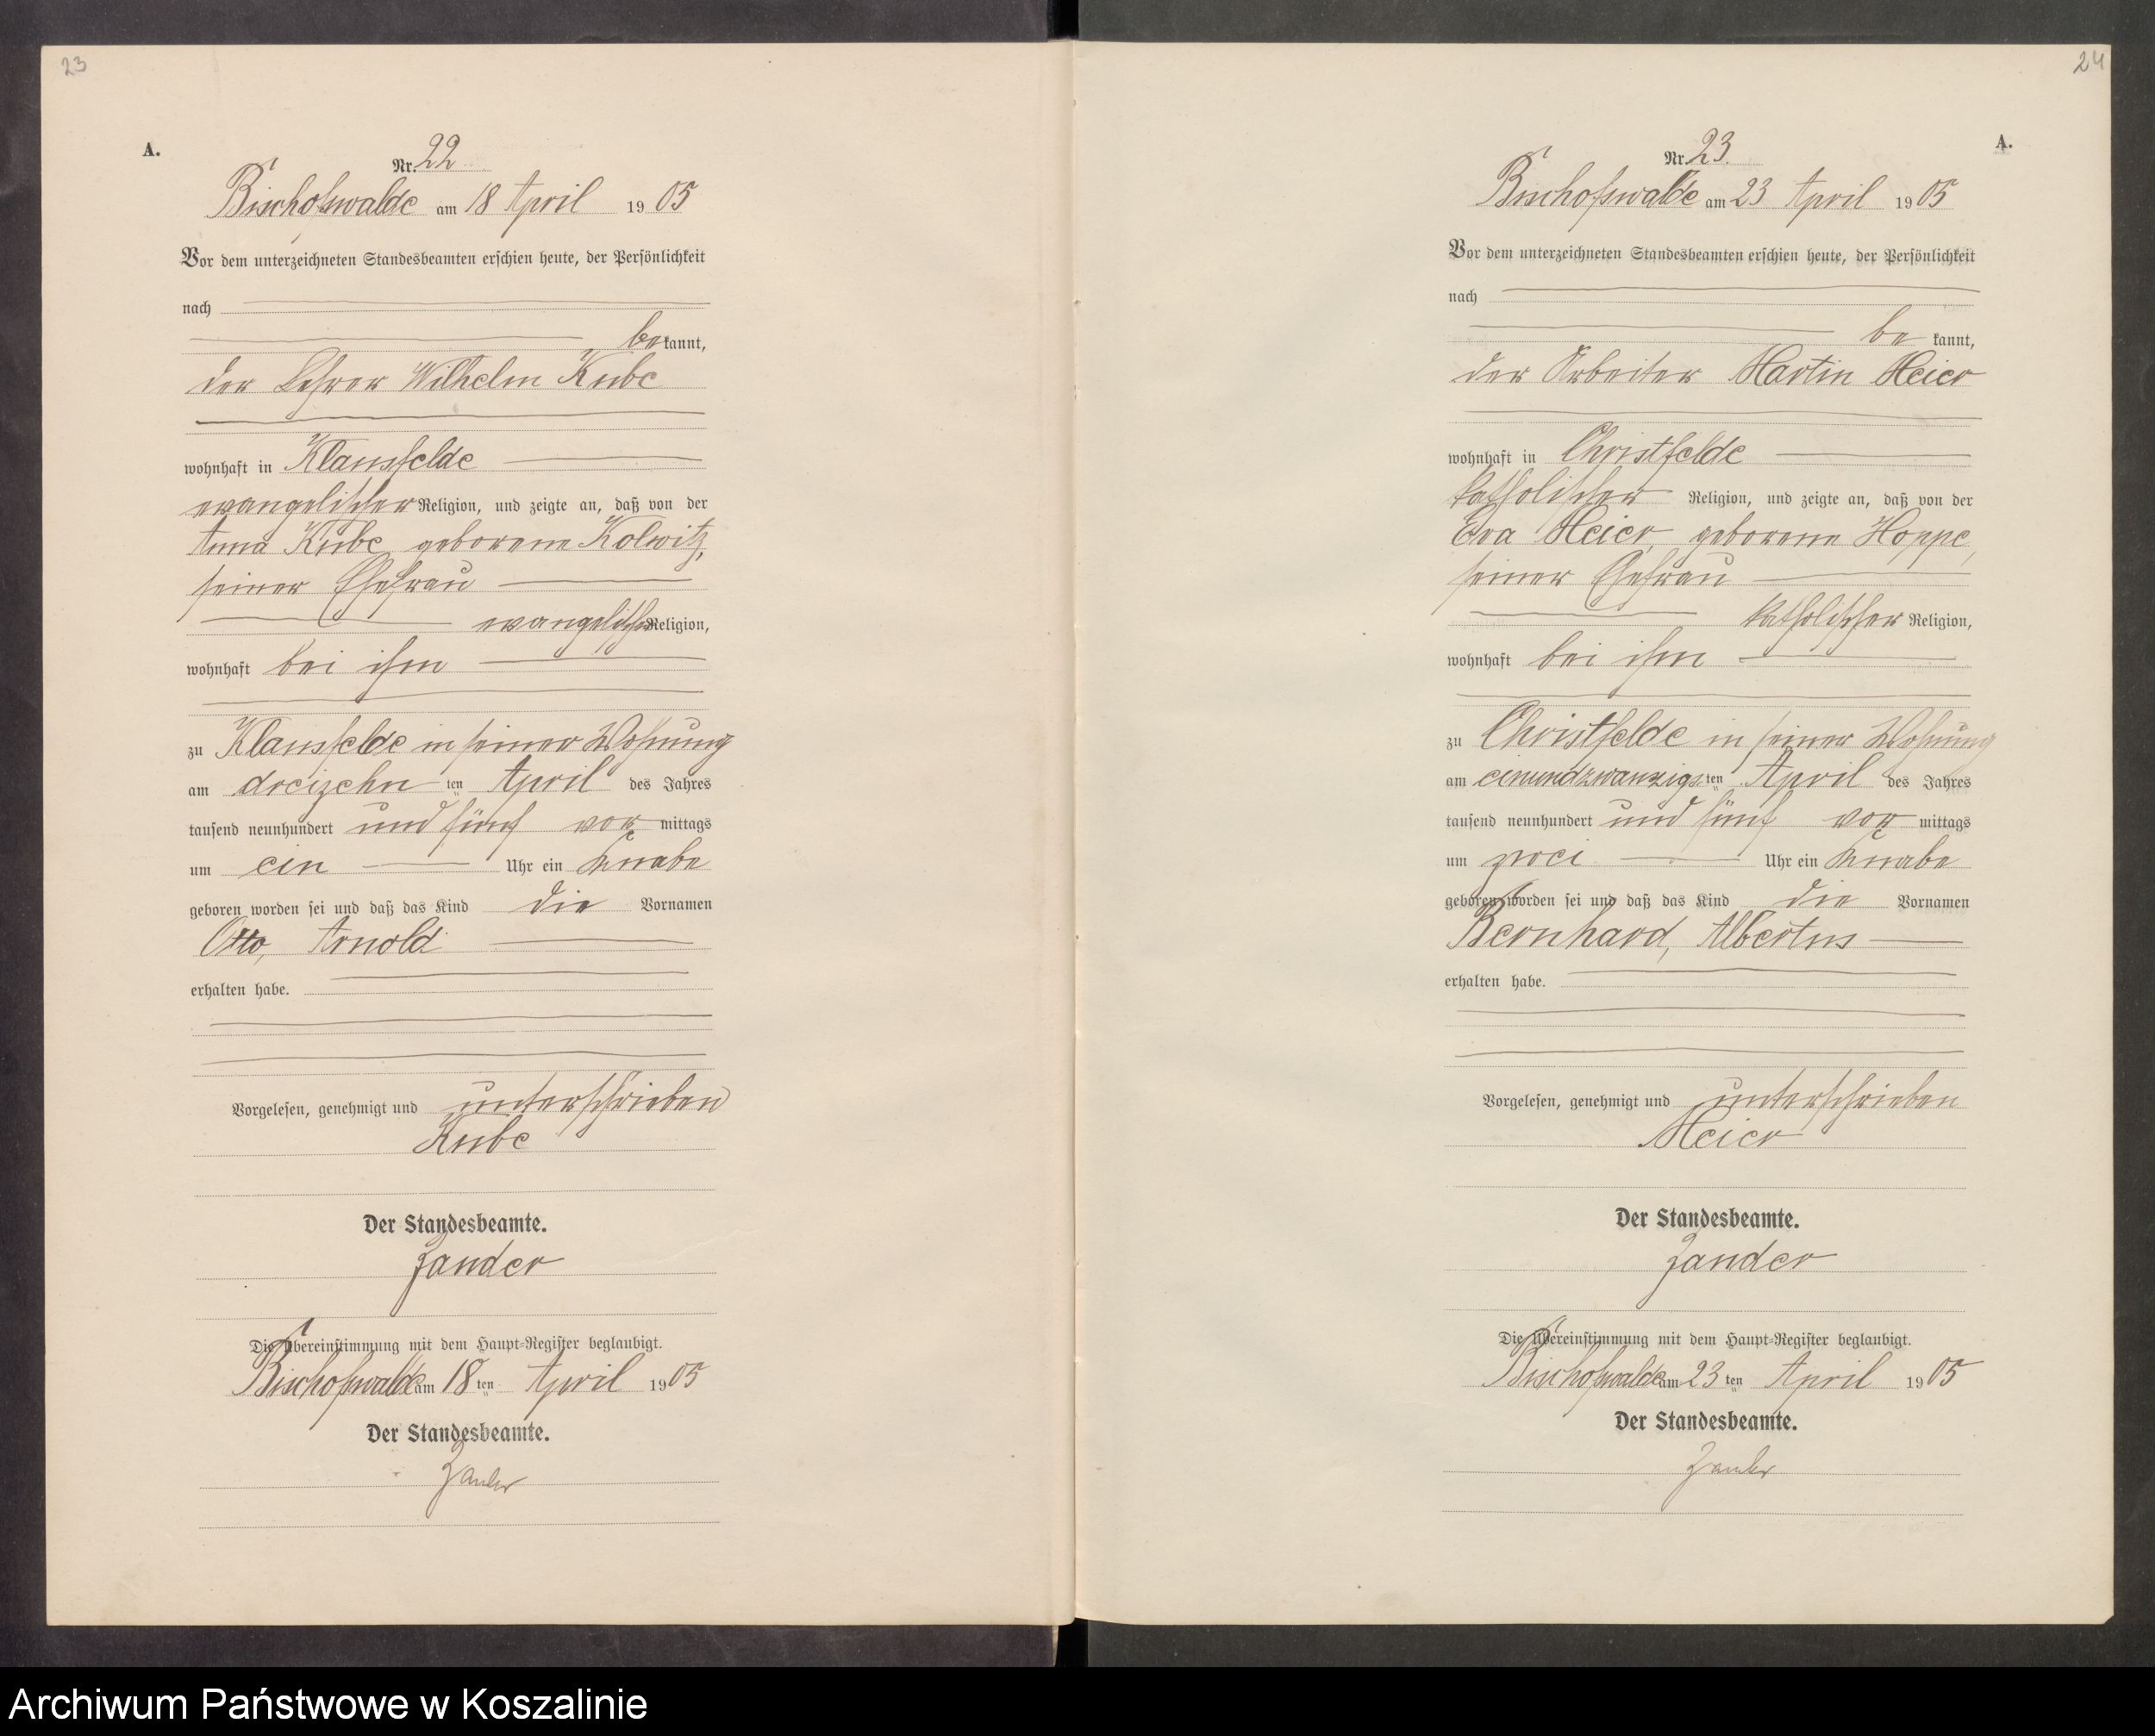 23
A.
Nr. 22
Bischofswalde am 18 April 1905
Vor dem unterzeichneten Standesbeamten erschien heute, der Persönlichkeit
nach
be kannt,
der Lehrer Wilhelm Kube
wohnhaft in Klausfelde
evangelischer Religion, und zeigte an, daß von der
Anna Kube geborene Kolwitz,
seiner Ehefrau
evangelischer Religion,
wohnhaft bei ihm
zu Klausfelde in seiner Wohnung
am dreizehn ten April des Jahres
tausend neunhundert und fünf vor mittags
um ein Uhr ein Knabe
geboren worden sei und daß das Kind die Vornamen
Otto, Arnold
erhalten habe.
Vorgelesen, genehmigt und unterschrieben
Kube
Der Standesbeamte.
Zander
Die Übereinstimmung mit dem Haupt-Register beglaubigt.
Bischofswalde am 18 ten April 1905
Der Standesbeamte.
Zander
24
A.
Nr. 23.
Bischofswalde am 23 April 1905
Vor dem unterzeichneten Standesbeamten erschien heute, der Persönlichkeit
nach
be kannt,
der Arbeiter Martin Meier
wohnhaft in Christfelde
katholischer Religion, und zeigte an, daß von der
Eva Meier, geborene Hoppe,
seiner Ehefrau
katholischer Religion,
wohnhaft bei ihm
zu Christfelde in seiner Wohnung
am einundzwanzigs ten April des Jahres
tausend neunhundert und fünf vor mittags
um zwei Uhr ein Knabe
geboren worden sei und daß das Kind die Vornamen
Bernhard, Albertus
erhalten habe.
Vorgelesen, genehmigt und unterschrieben
Meier
Der Standesbeamte.
Zander
Die Übereinstimmung mit dem Haupt-Register beglaubigt.
Bischofswalde am 23 ten April 1905
Der Standesbeamte.
Zander
Archiwum Państwowe w Koszalinie